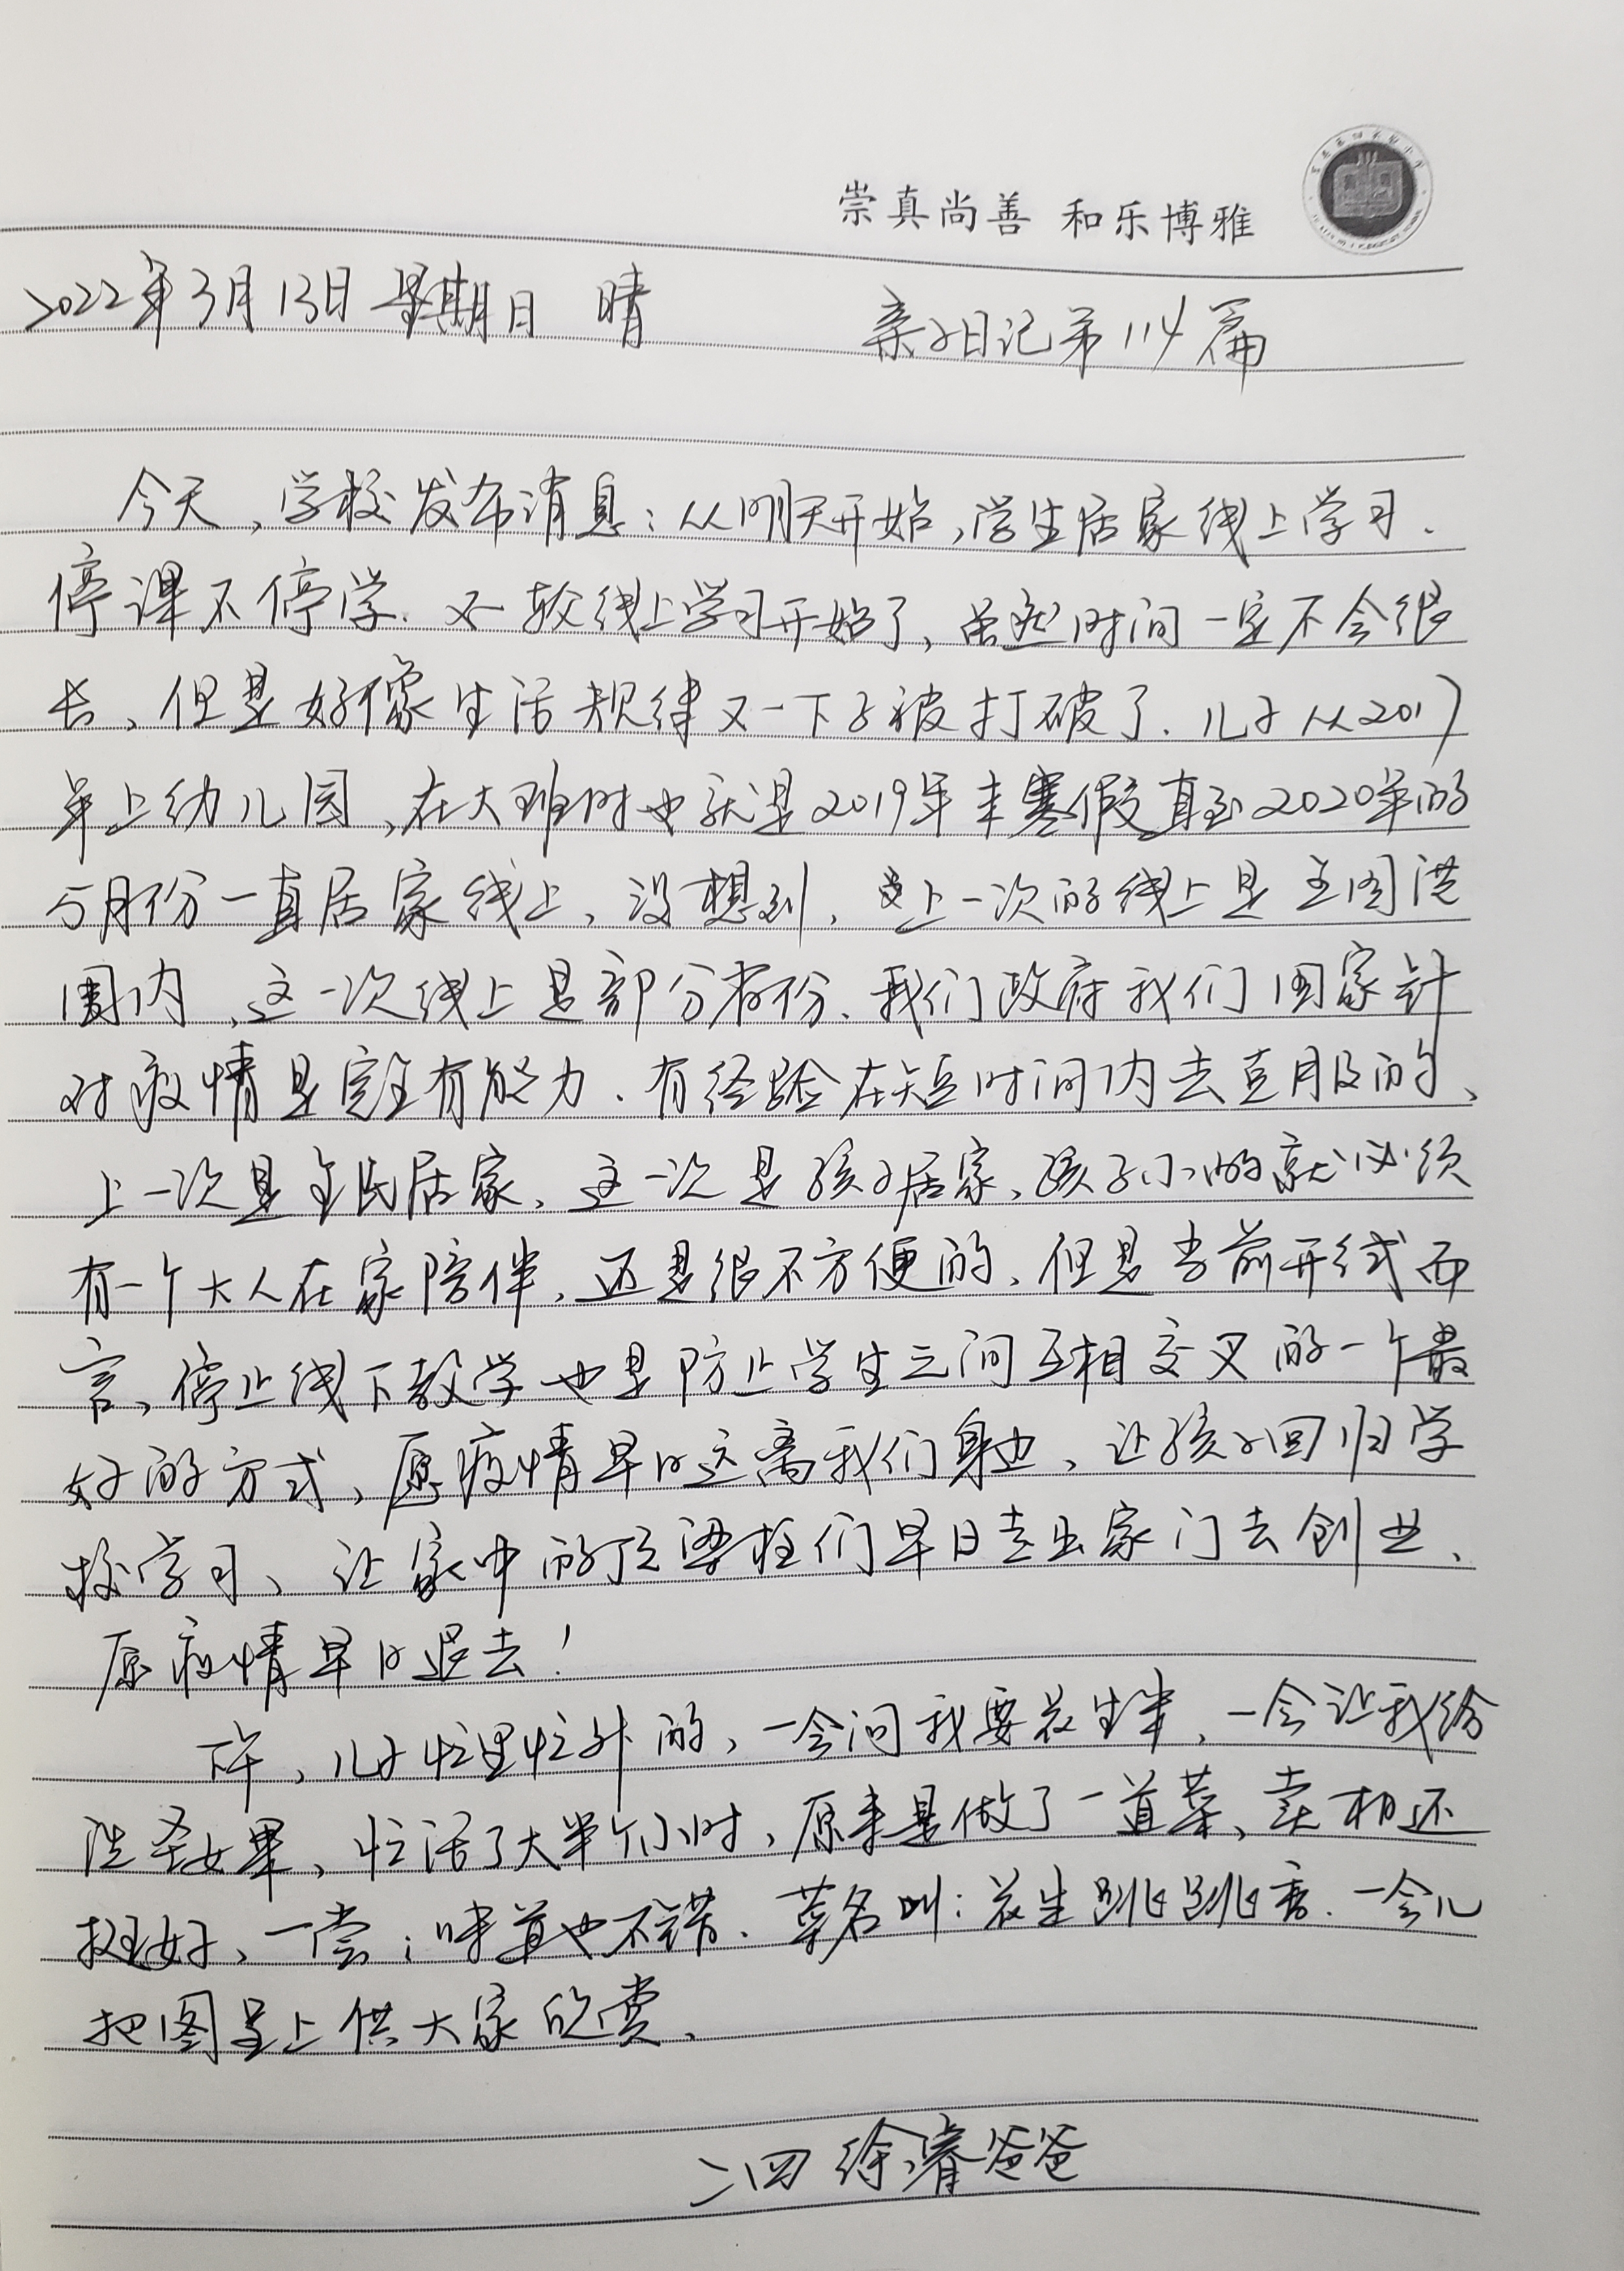 崇真尚善 和乐博雅
2022年3月13日 星期日 晴 亲子日记第114篇
今天,学校发布消息:从明天开始,学生居家线上学习.
停课不停学.又一轮线上学习开始了,虽然时间一定不会很
长、但是好像生活规律又一下子被打破了.儿子从2017
年上幼儿园,在大班时也就是2019年末寒假直至2020年的
5月份一直居家线上、没想到,上一次的线上是全国范
围内,这一次线上是部分省份、我们政府我们国家针
对疫情是完全有能力.有经验在短时间内去克服的、
上一次是全民居家、这一次是孩子居家、孩子小的就必须
有一个大人在家陪伴,还是很不方便的、但是当前形式而
言、停止线下教学也是防止学生之间互相交叉的一个最
好的方式、愿疫情早日远离我们身边、让孩子回归学
校学习、让家中的顶梁柱们早日走出家门去创业、
愿疫情早日退去!
下午,儿子忙里忙外的,一会问我要花生米、一会让我给
洗圣女果、忙活了大半个小时,原来是做了一道菜、卖相还
挺好、一尝;味道也不错.菜名叫:花生跳跳香.一会儿
把图呈上供大家欣赏、
二四 徐睿爸爸